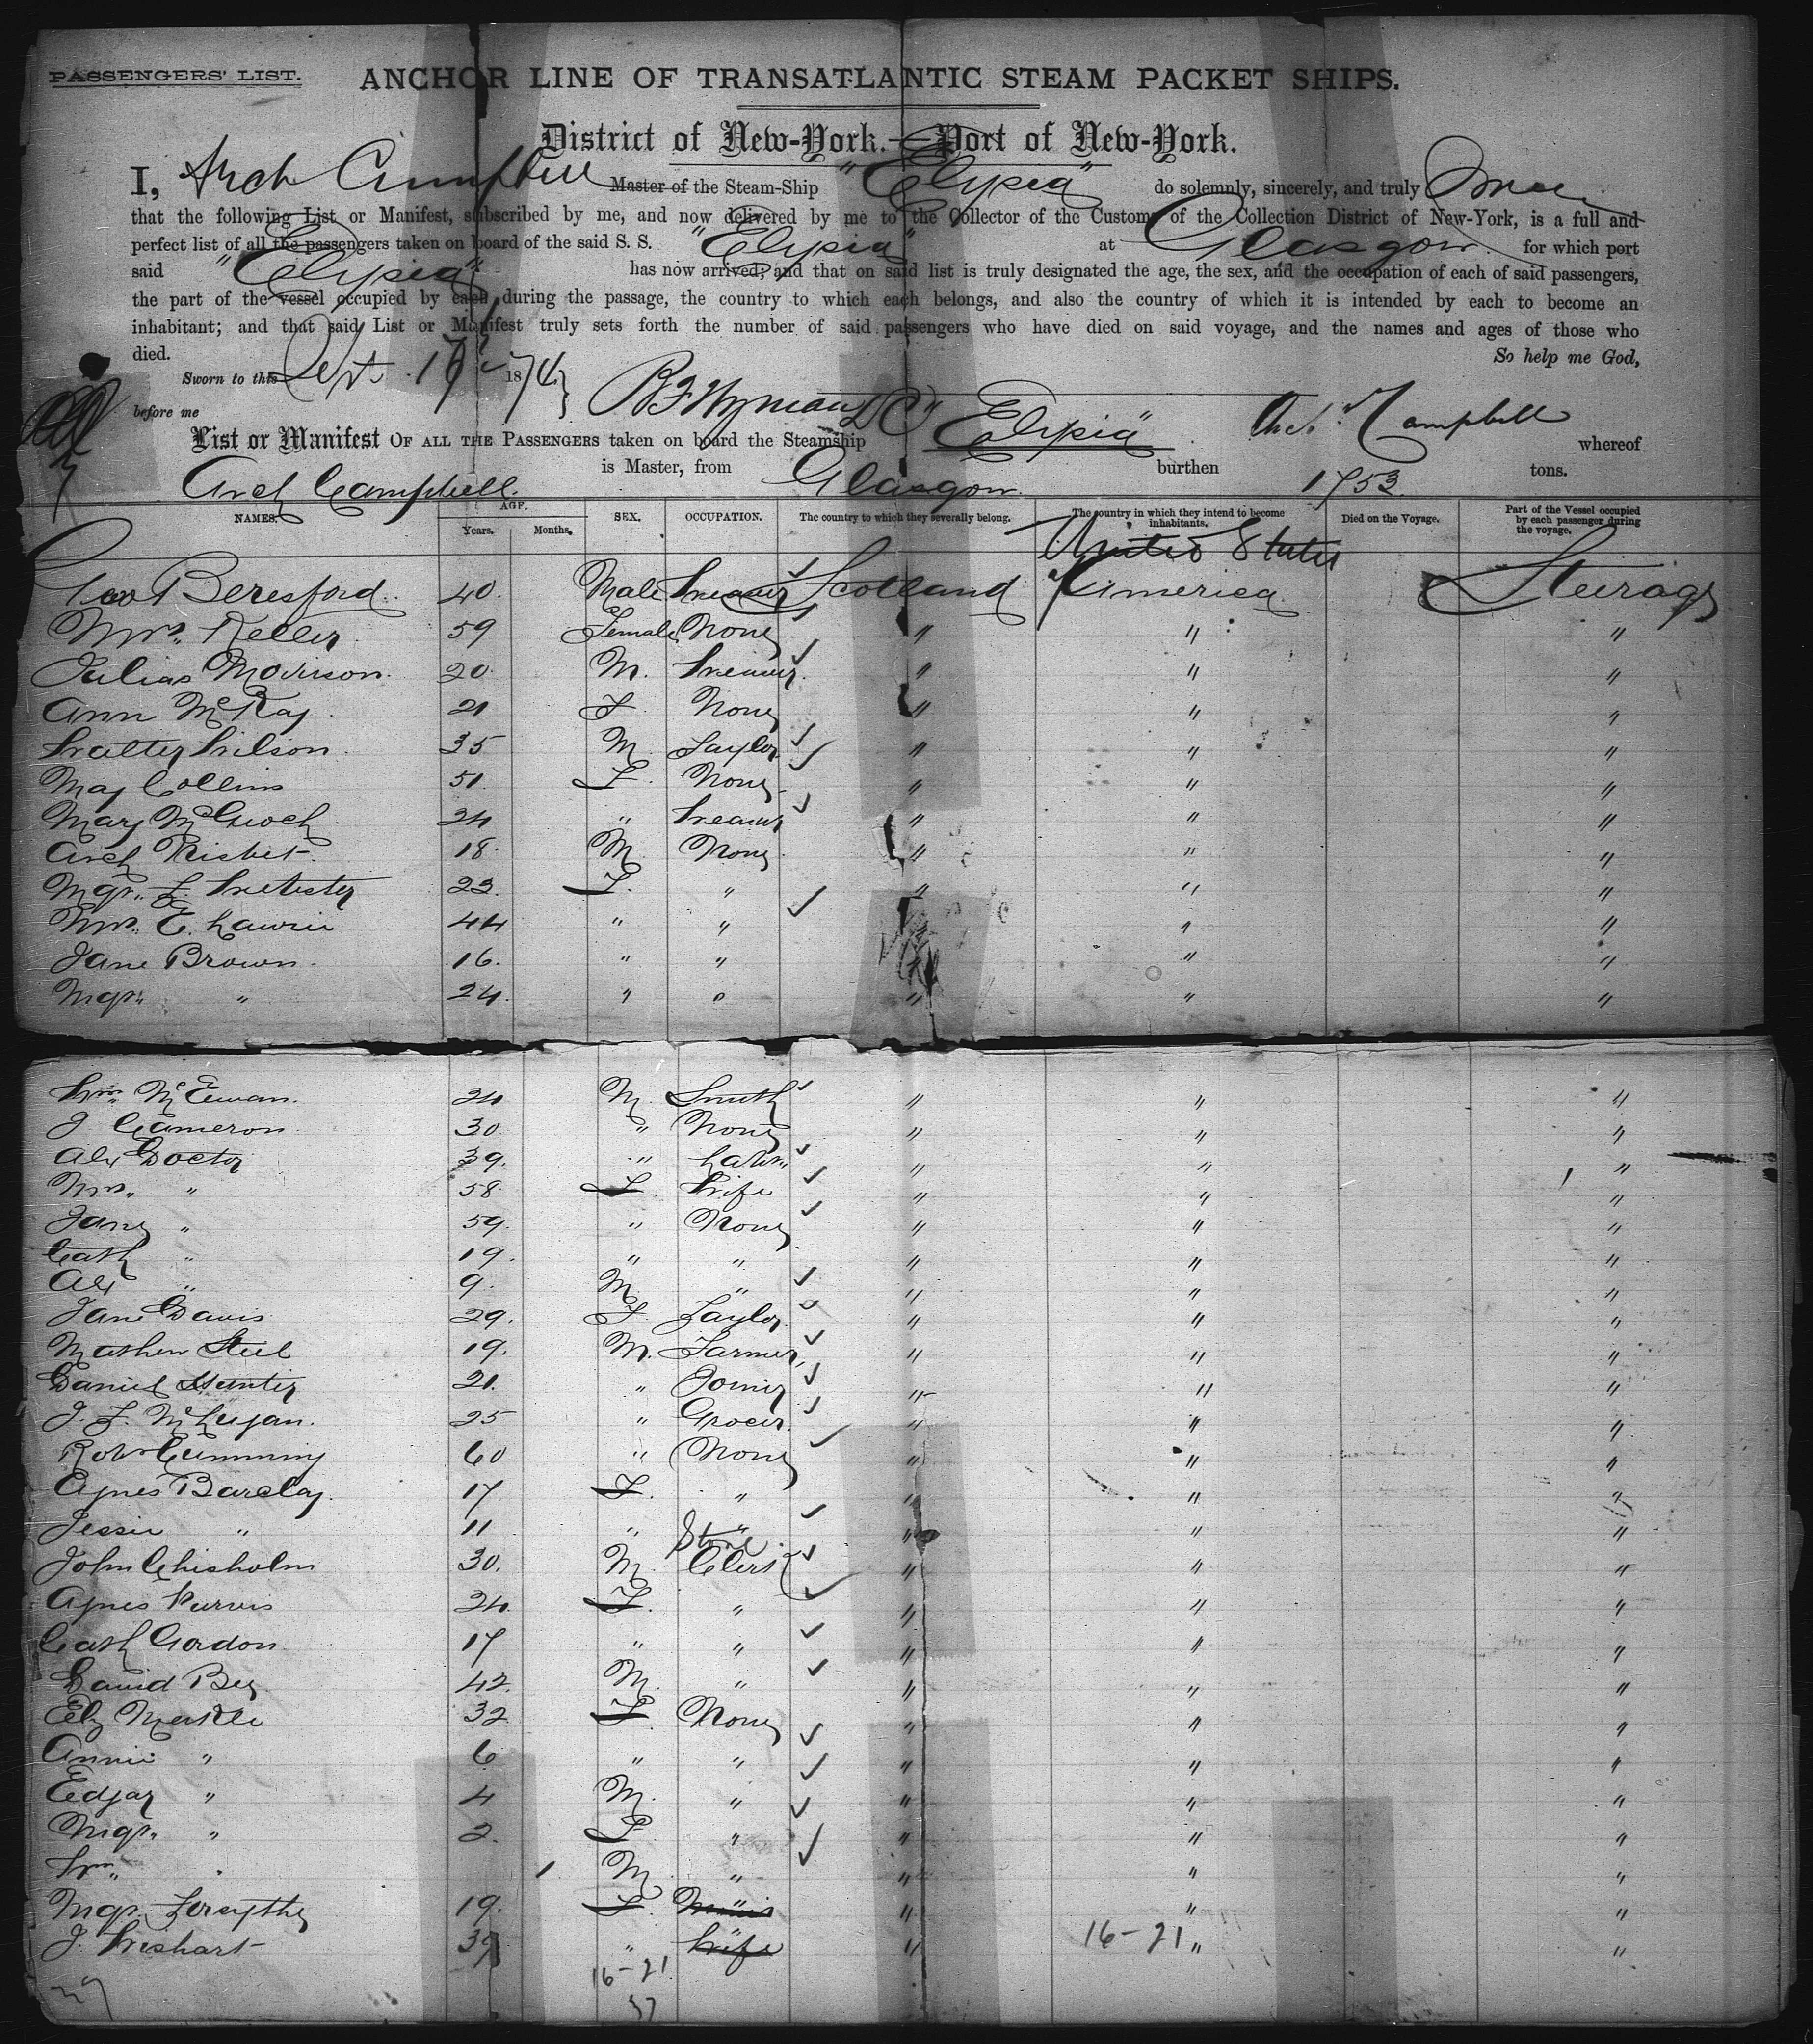 PASSENGERS' LIST.
ANCHOR LINE OF TRANSATLANTIC STEAM PACKET SHIPS.
District of New-York.—Port of New-York.
I, Arch Campbell Master of the Steam-Ship "Elysia" do solemnly, sincerely, and truly Swear
that the following List or Manifest, subscribed by me, and now delivered by me to the Collector of the Customs of the Collection District of New-York, is a full and
perfect list of all the passengers taken on board of the said S. S. "Elysia" at Glasgow for which port
said "Elysia" has now arrived; and that on said list is truly designated the age, the sex, and the occupation of each of said passengers,
the part of the vessel occupied by each during the passage, the country to which each belongs, and also the country of which it is intended by each to become an
inhabitant; and that said List or Manifest truly sets forth the number of said passengers who have died on said voyage, and the names and ages of those who
died. So help me God,
Sworn to this Sept. 17 1874
before me B F Wyman D C Arch Campbell
List or Manifest OF ALL THE PASSENGERS taken on board the Steamship "Elysia" whereof
Arch Campbell is Master, from Glasgow burthen 1753 tons.
NAMES. AGE. Years. Months. SEX. OCCUPATION. The country to which they severally belong. The country in which they intend to become inhabitants. Died on the Voyage. Part of the Vessel occupied by each passenger during the voyage.
United States
Geo Beresford 40. Male Weaver Scotland of America Steerage
Mrs. Keller 59 Female None " " "
Julias Morison 20 M. Weaver " " "
Ann McKay 21 F None " " "
Walter Wilson 35 M Taylor " " "
May Collins 51. F. None " " "
Mary McGuoch 24 " Weaver " " "
Arch Nisbet 18. M None " " "
Mgr. F Webster 23. F. " " " "
Mrs. E. Lawrie 44 " " " " "
Jane Brown 16. " " " " "
Mgr. " 24. " " " " "
Wm. McEwan. 24 M. Smith " " "
J Cameron 30 " None " " "
Alex Doctor 39. " Labr. " " "
Mrs. " 58 F. Wife " " "
Jane " 59. " None " " "
Cath " 19. " " " " "
Alex " 9. M " " " "
Jane Davis 29. F. Taylor " " "
Mathew Steel 19. M. Farmer " " "
Daniel Hunter 21. " Joiner " " "
J. F. McLujan. 25 " Grocer " " "
Robt Cumming 60 " None " " "
Agnes Barclay 17 F. " " " "
Jessie " 11 " " " " "
John Chisholm 30. M. Store Clerk " " "
Agnes Purvis 24. F. " " " "
Cath Gordon 17 " " " " "
David Bey 42. M. " " " "
Eliz Merkle 32 F. None " " "
Annie " 6 " " " " "
Edgar " 4 M. " " " "
Mgr. " 2. F " " " "
Wm. " 1 M " " " "
Mgr. Forsythe 19. F. " " "
J. Wishart 37 " Wife " " "
16-21 16-21
37